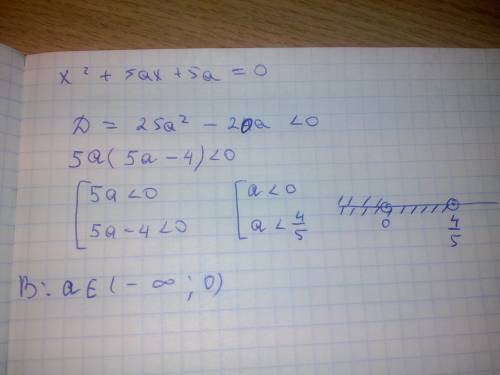 x² + 5ax + 5a = 0
D = 25a² - 20a < 0
5a(5a - 4) < 0
[ 5a < 0 [ a < 0
5a - 4 < 0 a < 4/5
0 4/5
B: a ∈ (- ∞ ; 0)